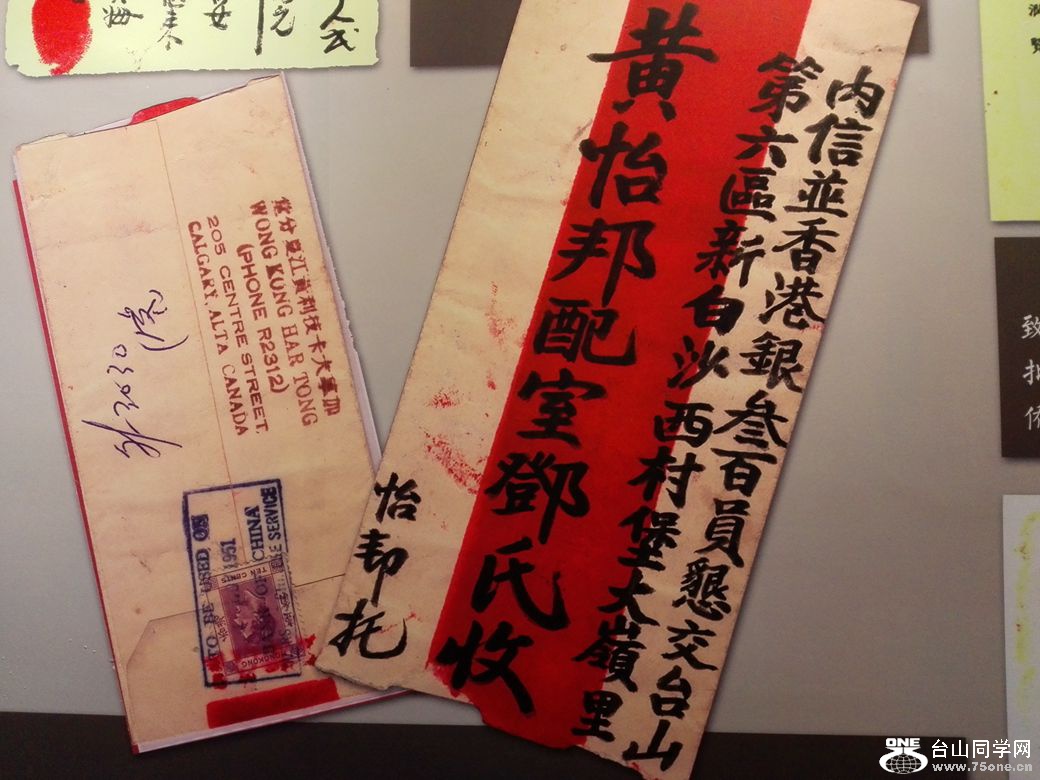 内信並香港銀叁百員懇交台山
第六區新白沙西村堡大嶺里
黄怡邦配室鄧氏收
怡邦托
加拿大卡技利黃江夏分堂
WONG KUNG HAR TONG
(PHONE R2312)
205 CENTRE STREET.
CALGARY, ALTA CANADA
TO BE USED ON
1951
CHINA
SERVICE
TEN CENTS
HONGKONG
致
ONE
台山同学网
www.75one.cn